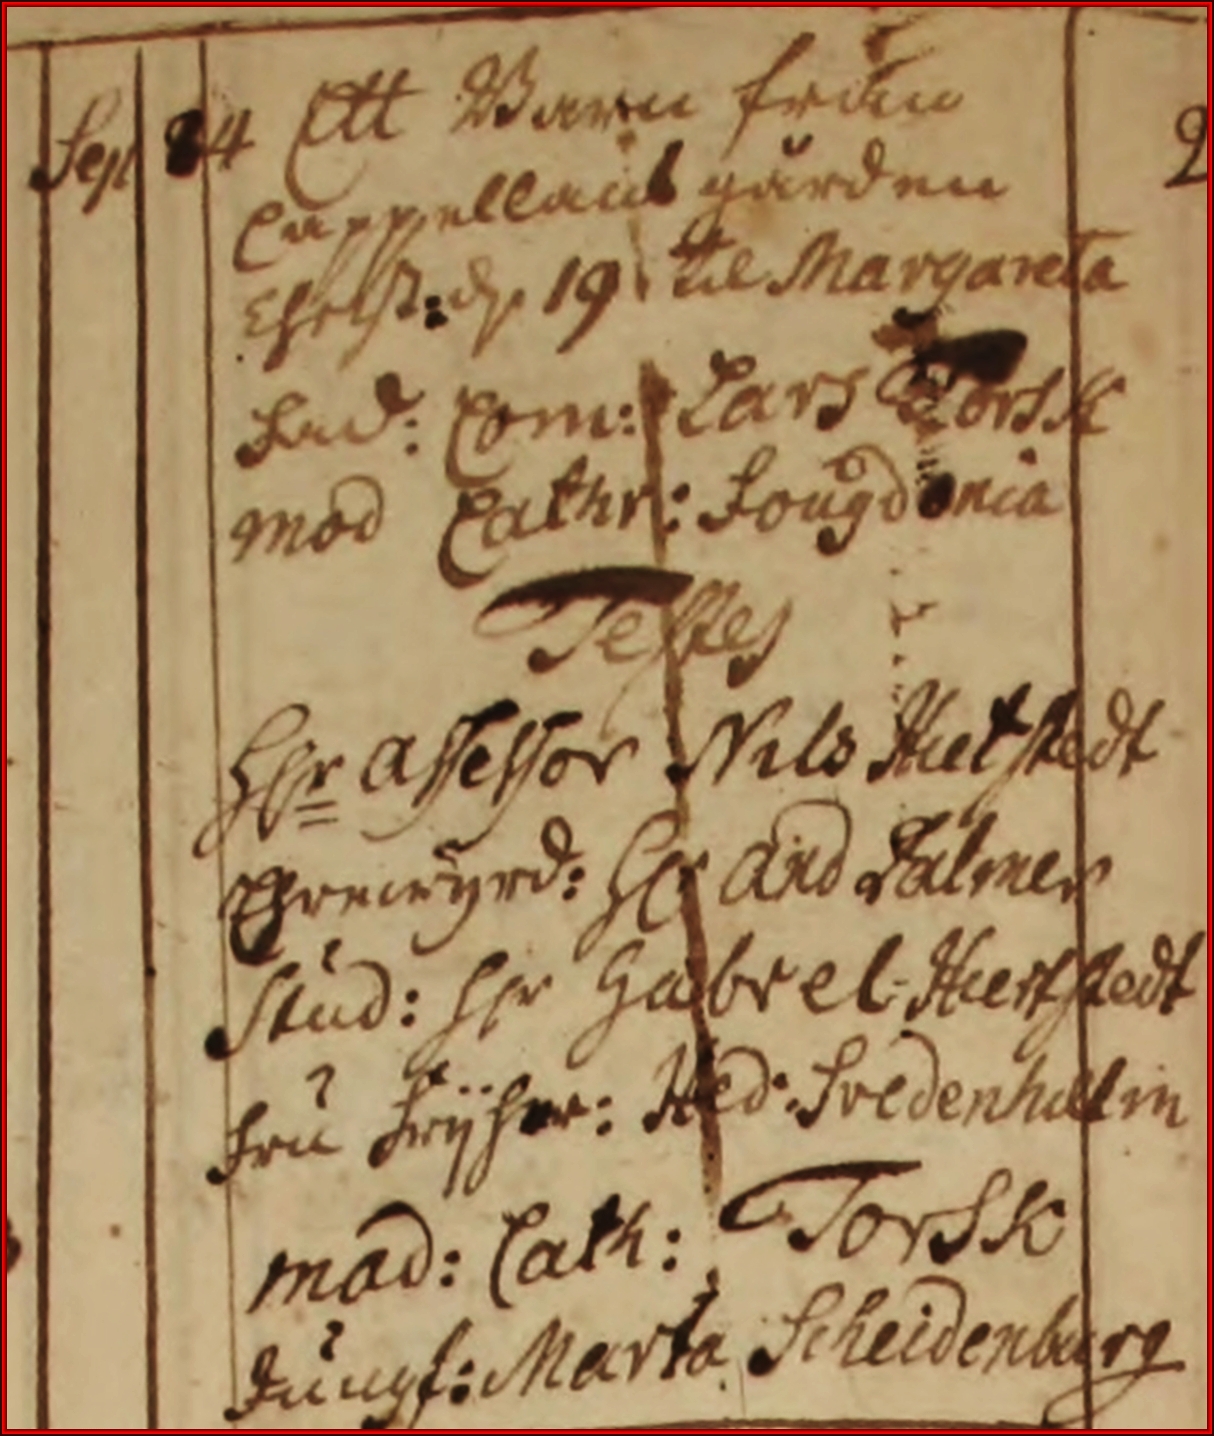 Sept 14 Ett Barn från
Cappellans gården
Christ: d. 19 til Margareta
Fad: Com: Lars Torsk
Mod Cathr: Fougdonia
Testes
Hr Assessor Nils Hiertstedt
Hr And Falmer
Stud: Hr Gabrel Hiertstedt
Fru Hed: Svedenhielm
Mad: Cath: Torsk
Jungf: Marta Scheidenburg